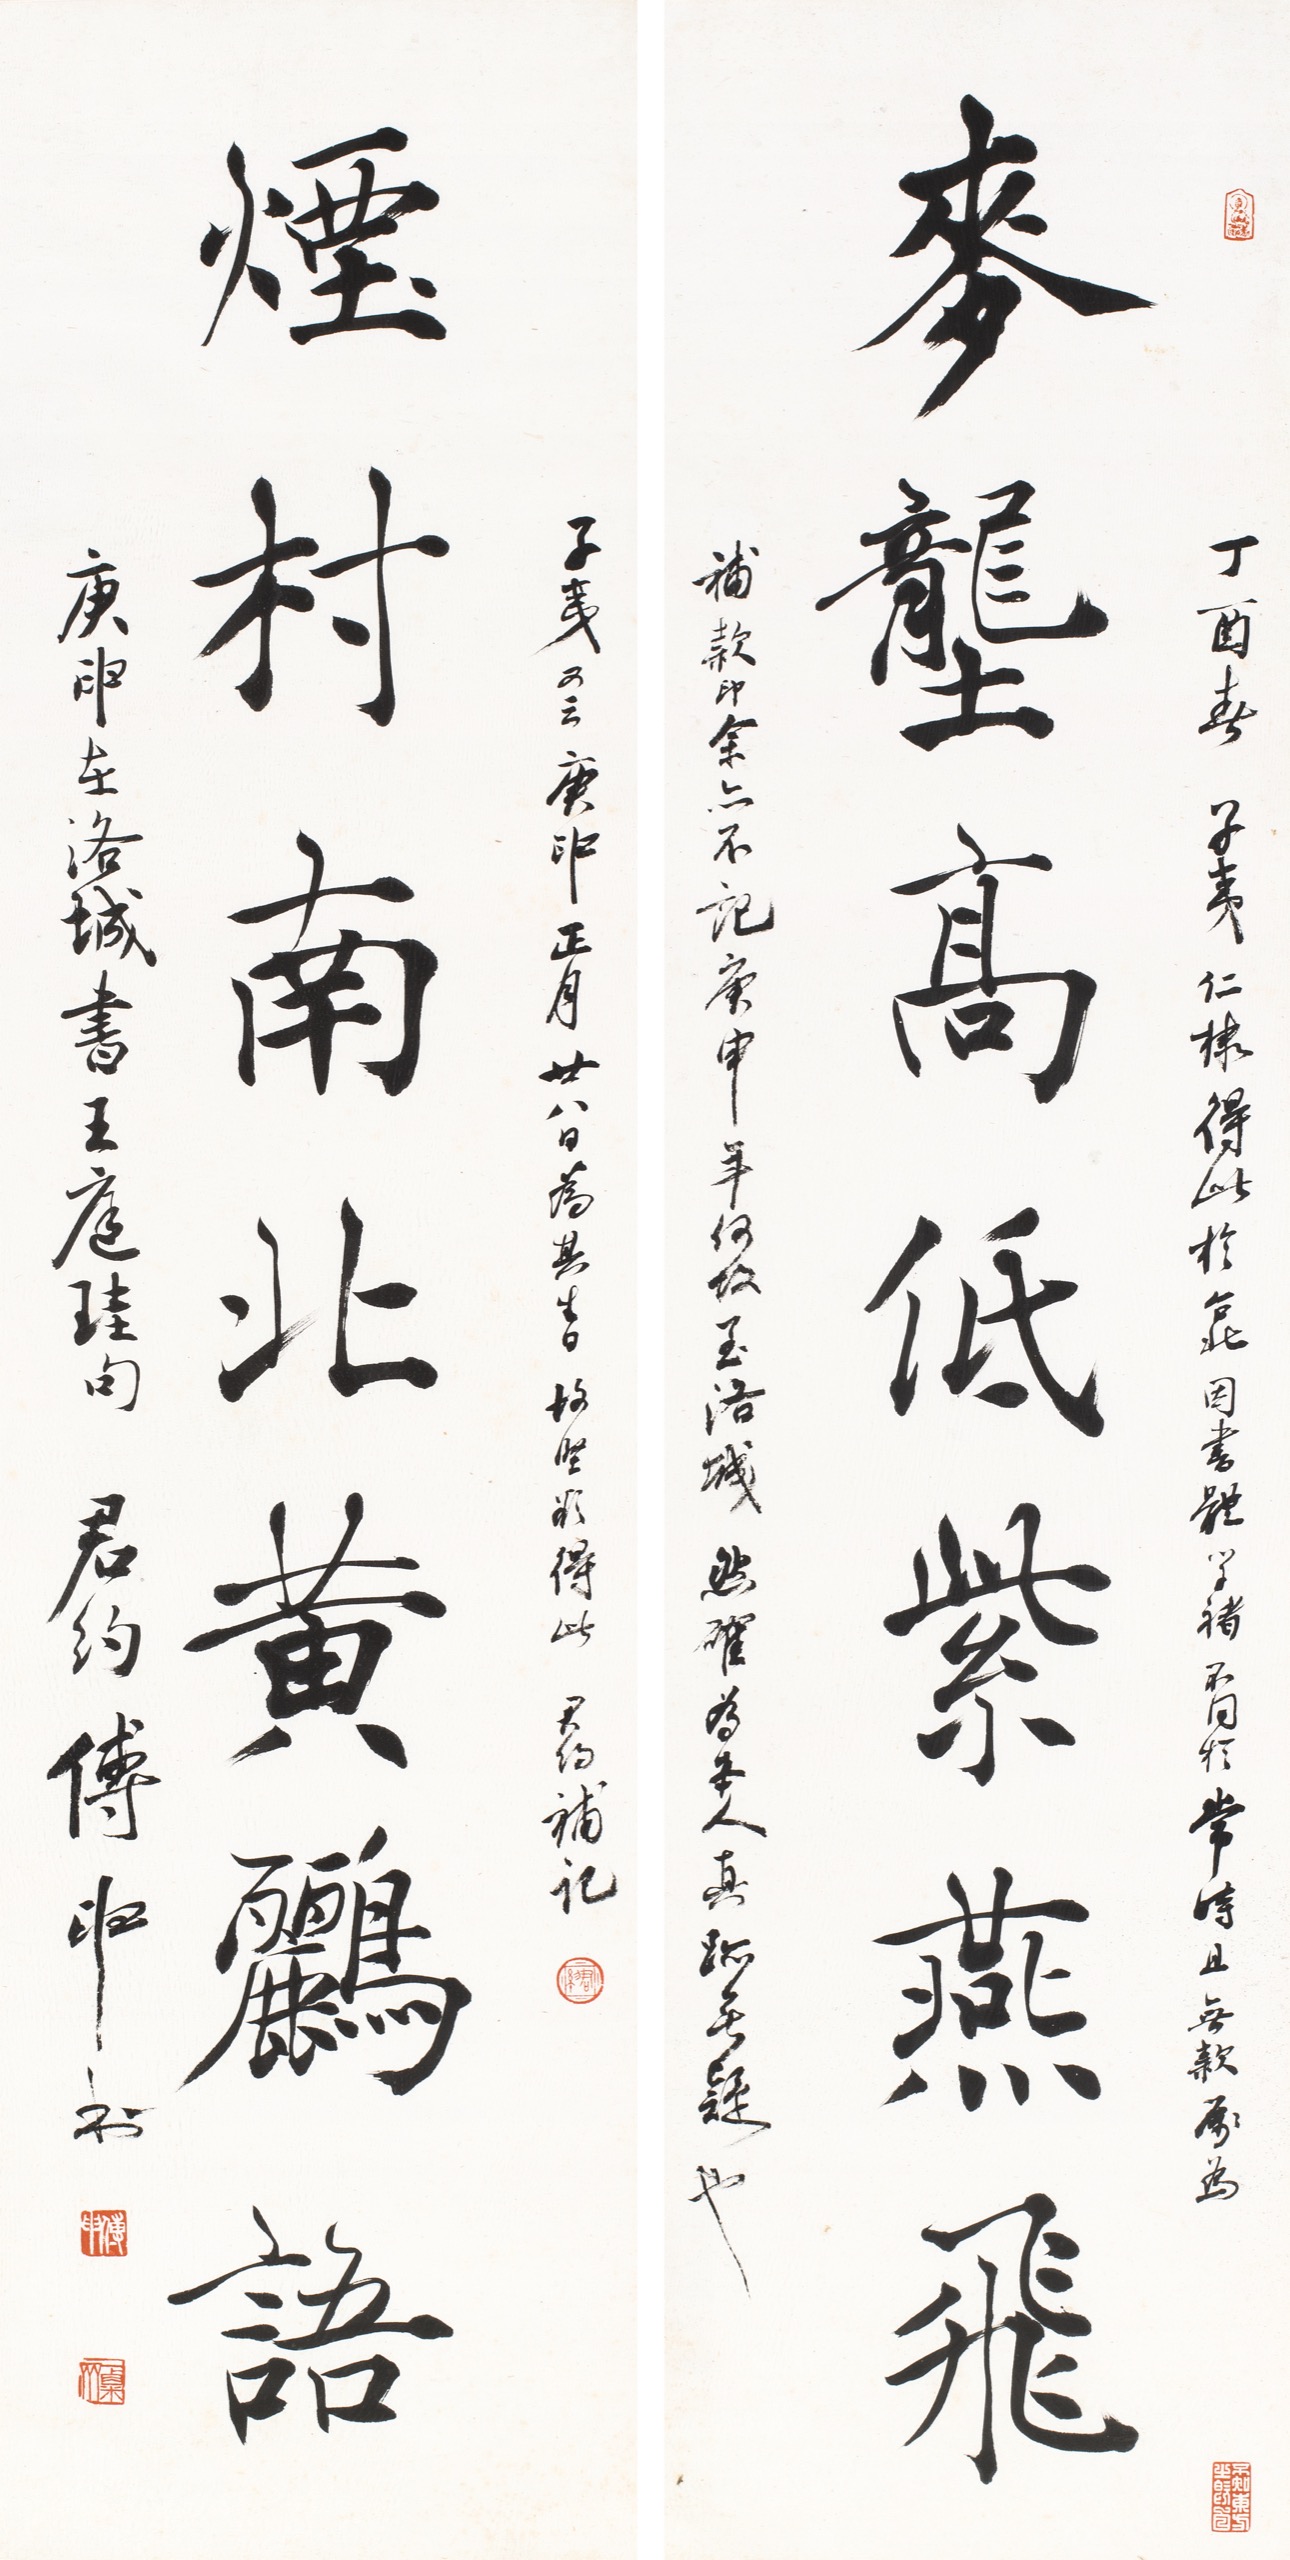 麥壟高低紫燕飛
丁酉春 子夷仁棣得此於 因書體 不同於常時且無款屬為
補款印余亦不記庚申年何故至洛城 然確為本人真跡無疑也
煙村南北黃鸝語
子夷又言庚申正月廿八日為其生日 故堅欲得此 君約補記
庚申在洛城書王庭珪句 君約傅申